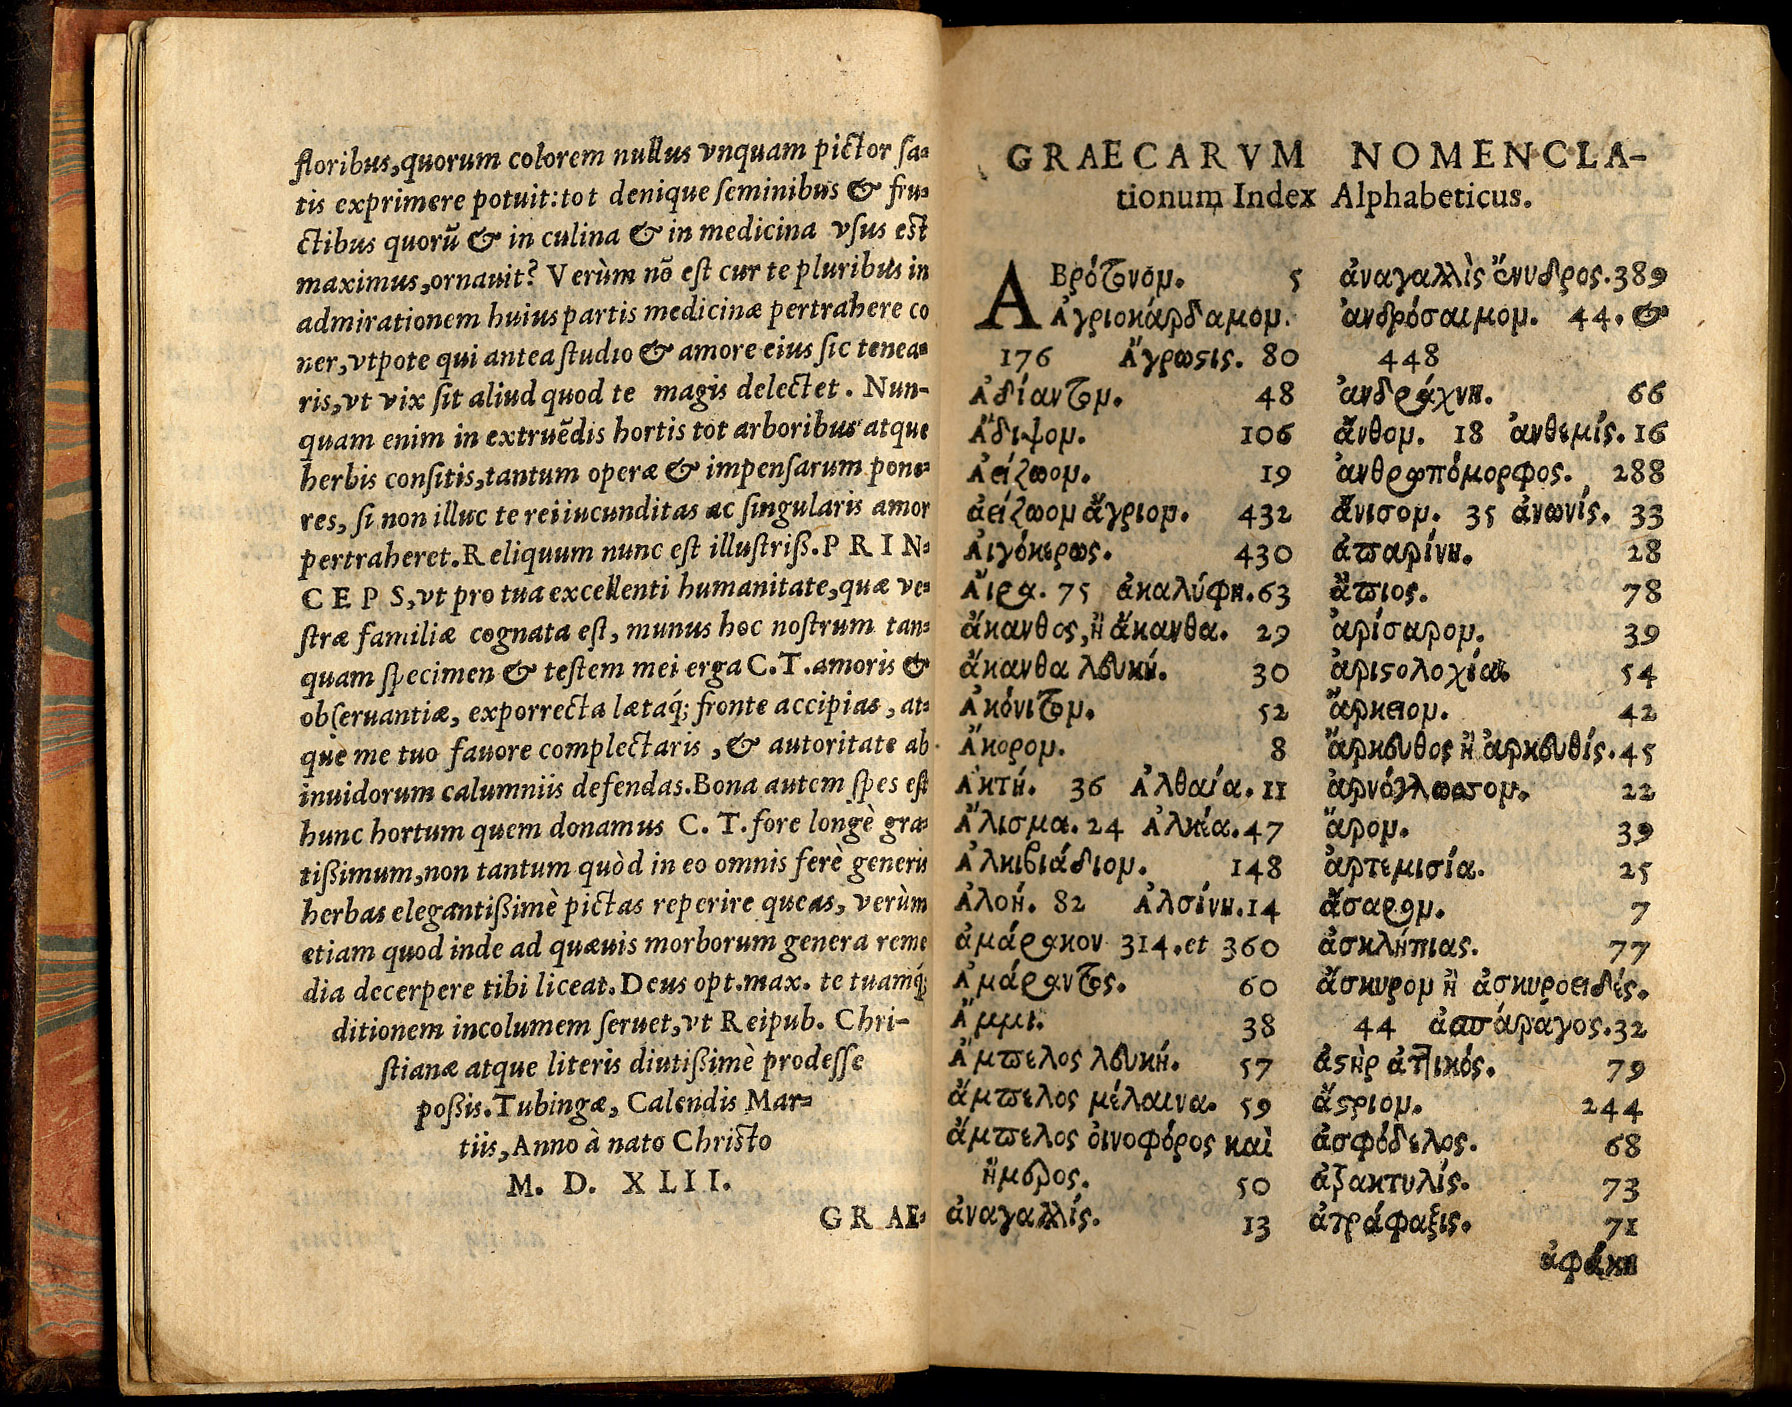 floribus, quorum colorem nullus vnquam pictor ſa-
tis exprimere potuit: tot denique ſeminibus & fru-
ctibus quorũ & in culina & in medicina vſus eſt
maximus, ornauit? Verùm nõ eſt cur te pluribus in
admirationem huius partis medicinæ pertrahere co
ner, vtpote qui antea ſtudio & amore eius ſic tenea-
ris, vt vix ſit aliud quod te magis delectet. Nun-
quam enim in extruẽdis hortis tot arboribus atque
herbis conſitis, tantum operæ & impenſarum pone-
res, ſi non illuc te rei iucunditas ac ſingularis amor
pertraheret. Reliquum nunc eſt illuſtriß. PRIN-
CEPS, vt pro tua excellenti humanitate, quæ ve-
ſtræ familiæ cognata eſt, munus hoc noſtrum tan-
quam ſpecimen & teſtem mei erga C.T. amoris &
obſeruantiæ, exporrecta lætaq́; fronte accipias, at-
que me tuo fauore complectaris, & autoritate ab
inuidorum calumniis defendas. Bona autem ſpes eſt
hunc hortum quem donamus C. T. fore longè gra-
tißimum, non tantum quòd in eo omnis ferè generis
herbas elegantißimè pictas reperire queas, verùm
etiam quod inde ad quæuis morborum genera reme
dia decerpere tibi liceat. Deus opt. max. te tuamq́;
ditionem incolumem ſeruet, vt Reipub. Chri-
ſtianæ atque literis diutißimè prodeſſe
poßis. Tubingæ, Calendis Mar-
tiis, Anno à nato Chriſto
M. D. XLII.
GRAE-
GRAECARVM NOMENCLA-
tionum Index Alphabeticus.
ΑΒρότονομ. 5
Ἀγριοκάρδαμομ.
176 Ἄγρωςις. 80
Ἀδίαντομ. 48
Ἄδιψομ. 106
Ἀείζωομ. 19
ἀείζωομ ἄγριομ. 432
Ἀιγόκερως. 430
Ἄιρα. 75 ἀκαλύφη. 63
ἄκανθος, ἢ ἄκανθα. 29
ἄκανθα λευκή. 30
Ἀκόνιτομ. 52
Ἄκορομ. 8
Ἀκτή. 36 Ἀλθαία. 11
Ἄλισμα. 24 Ἀλκέα. 47
Ἀλκιβιάδιομ. 148
Ἀλοή. 82 Ἀλσίνη. 14
ἀμάρακον 314. et 360
Ἀμάραντος. 60
Ἄμμι. 38
Ἄμπελος λευκή. 57
ἄμπελος μέλαινα. 59
ἄμπελος ὀινοφόρος καὶ
ἥμερος. 50
ἀναγαλλίς. 13
ἀναγαλλὶς ἔνυδρος. 389
ἀνδρόσαιμομ. 44. &
448
ἀνδράχνη. 66
ἄνθομ. 18 ἀνθεμίς. 16
ἀνθρωπόμορφος. 288
ἄνισομ. 35 ἀνωνίς. 33
ἀπαρίνη. 28
ἄπιος. 78
ἀρίσαρομ. 39
ἀριςολοχία. 54
ἄρκειομ. 42
ἄρκευθος ἢ ἀρκευθίς. 45
ἀρνόγλωσσομ. 22
ἄρομ. 39
ἀρτεμισία. 25
ἄσαρομ. 7
ἀσκλήπιας. 77
ἄσκυρομ ἢ ἀσκυροειδές.
44 ἀσπάραγος. 32
ἀςὴρ ἀττικός. 79
ἄςριομ. 244
ἀσφόδελος. 68
ἀτρακτυλίς. 73
ἀτράφαξις. 71
ἀφάκη